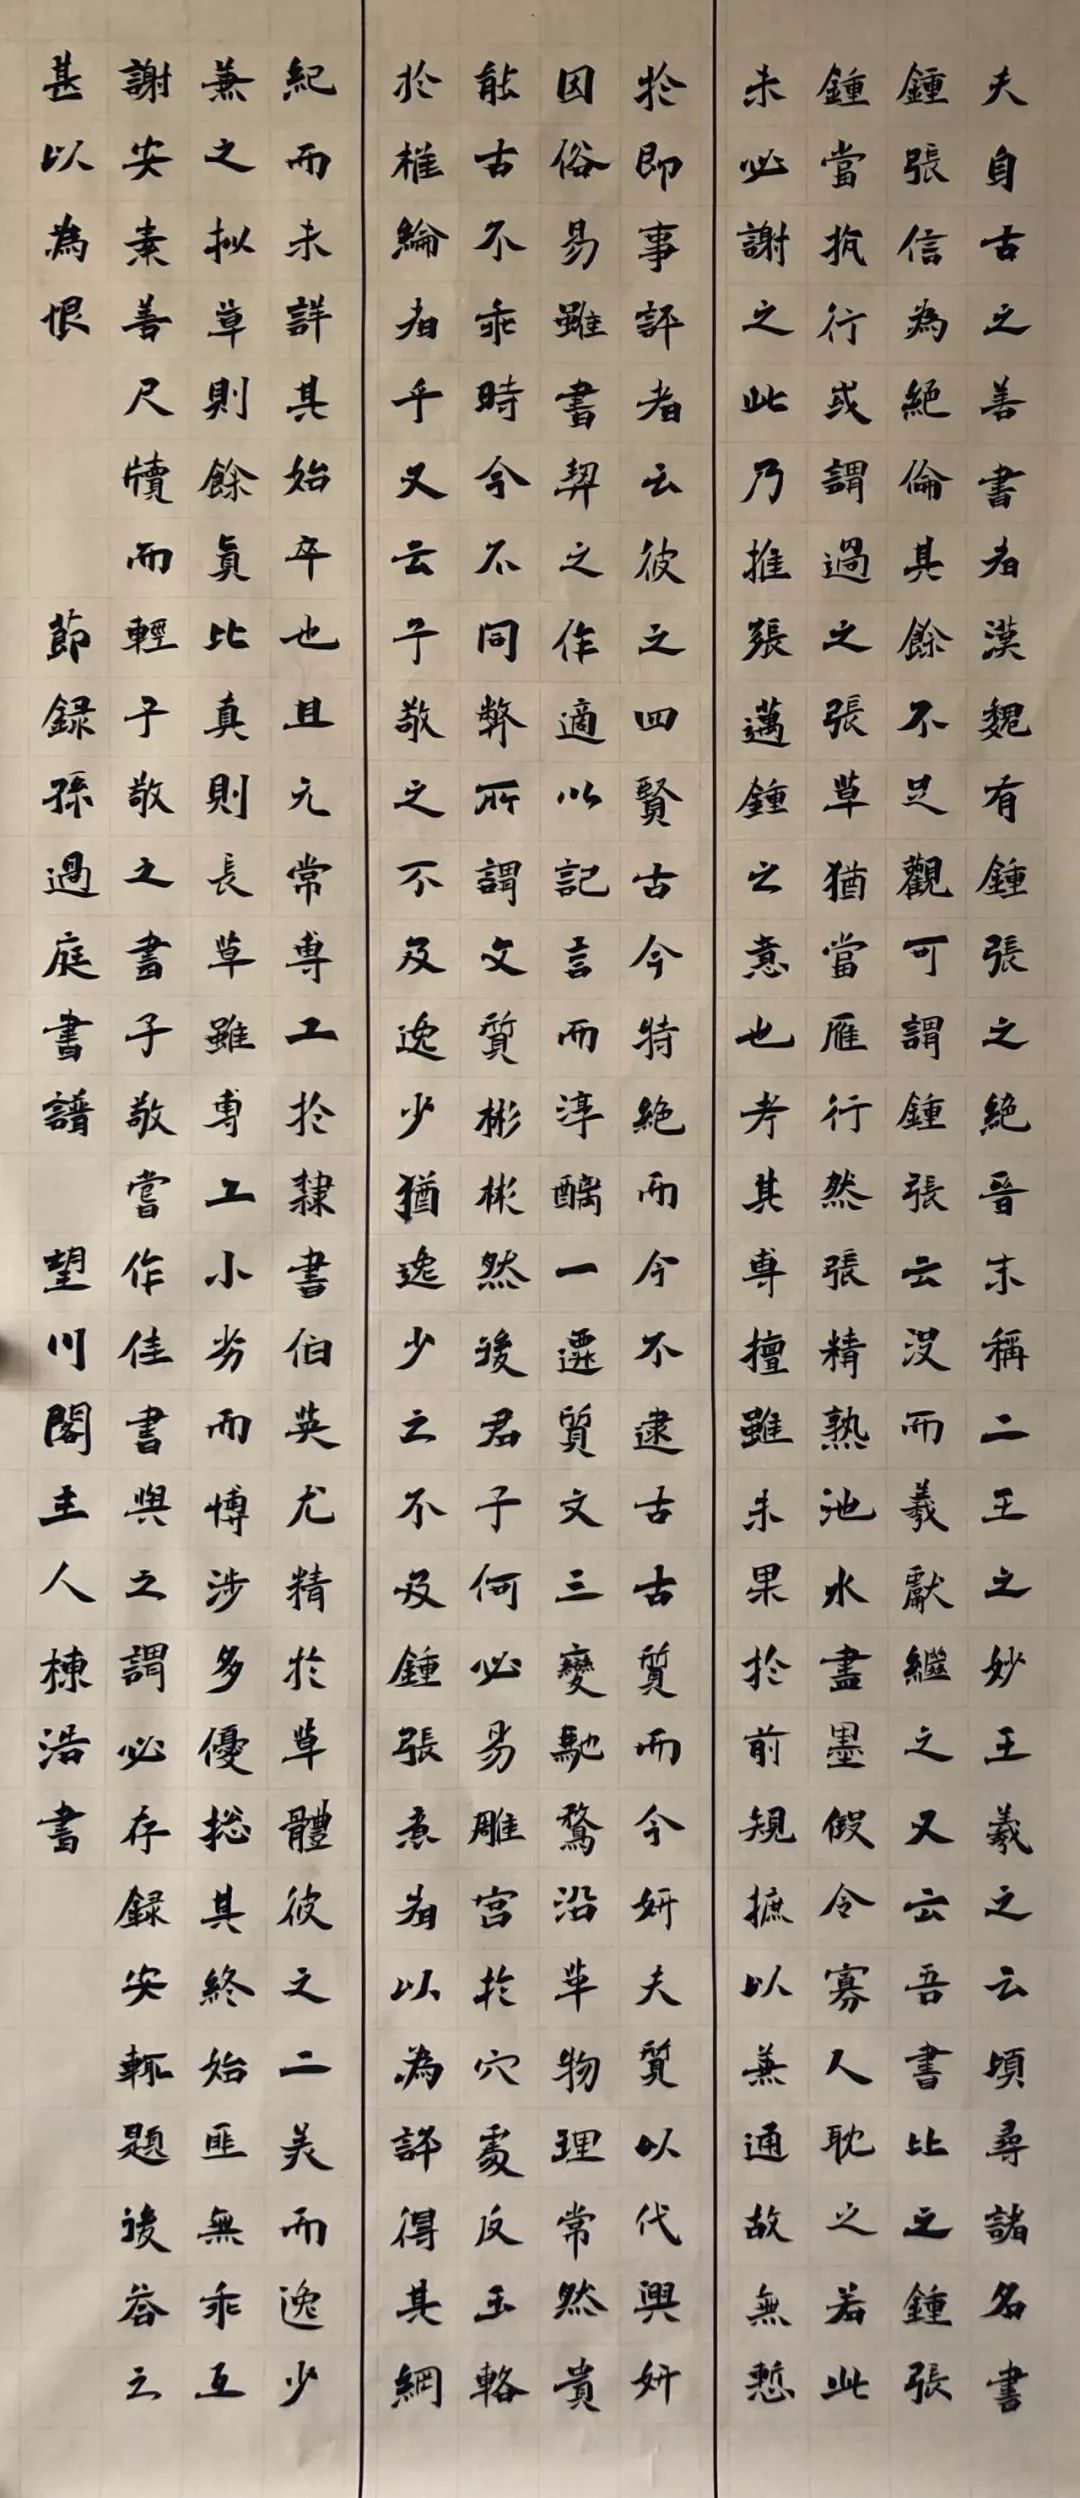 夫自古之善書者漢魏有鍾張之絕晉末稱二王之妙王羲之云頃尋諸名書
鍾張信為絕倫其餘不足觀可謂鍾張云沒而羲獻繼之又云吾書比之鍾張
鍾當抗行或謂過之張草猶當雁行然張精熟池水盡墨假令寡人耽之若此
未必謝之此乃推張邁鍾之意也考其專擅雖未果於前規摭以兼通故無慙
於即事評者云彼之四賢古今特絕而今不逮古古質而今妍夫質以代興妍
因俗易雖書契之作適以記言而淳醨一遷質文三變馳騖沿革物理常然貴
能古不乖時今不同弊所謂文質彬彬然後君子何必易雕宮於穴處反玉輅
於椎綸者乎又云子敬之不及逸少猶逸少之不及鍾張意者以為評得其綱
紀而未詳其始卒也且元常專工於隸書伯英尤精於草體彼之二美而逸少
兼之拟草則餘真比真則長草雖專工小劣而博涉多優揔其終始匪無乖互
謝安素善尺牘而輕子敬之書子敬嘗作佳書與之謂必存録安輒題後答之
甚以為恨 節録孫過庭書譜 望川閣主人棟浩書